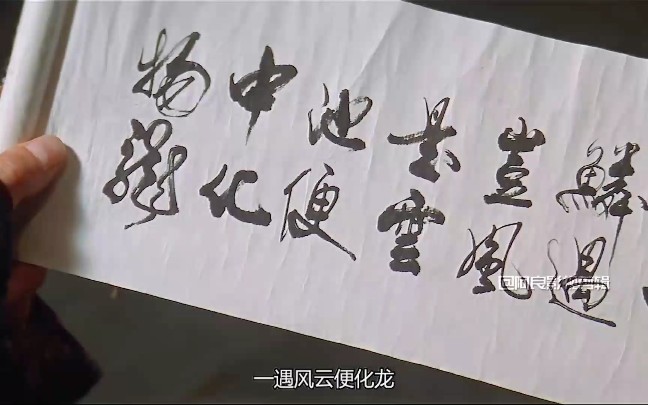 鱗豈是池中物
遇風雲便化龍
一遇风云便化龙